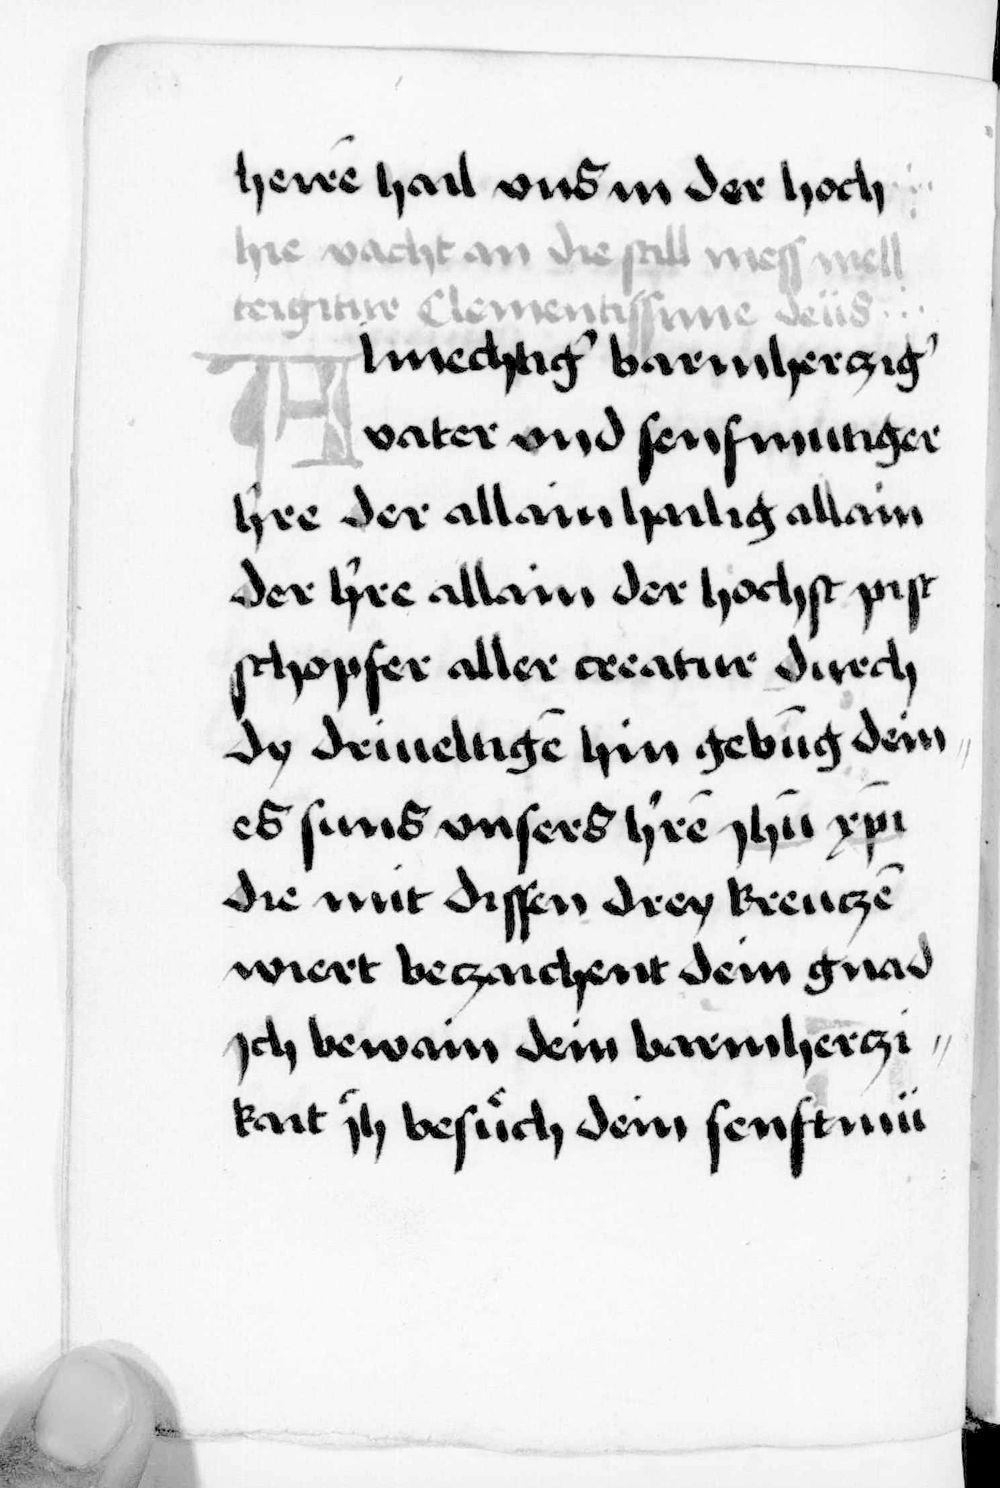 herrē hail vns in der hoch
hie vacht an die still mess mell
teigitur Clementissime deüs
Almechtig' barmherczig'
vater vnd senfmutiger
h're der allain hailig allain
der h're allain der hochst pist
schopfer aller creatur durch
dy driueltigē hin gebūg dein〃
es suns vnsers h'rē jhū xp̄i
die mit dissen drey kreuczē
wiert beczaichent dein gnad
ich bewain dein barmherczi〃
kait ih besuͦch dein senftmü